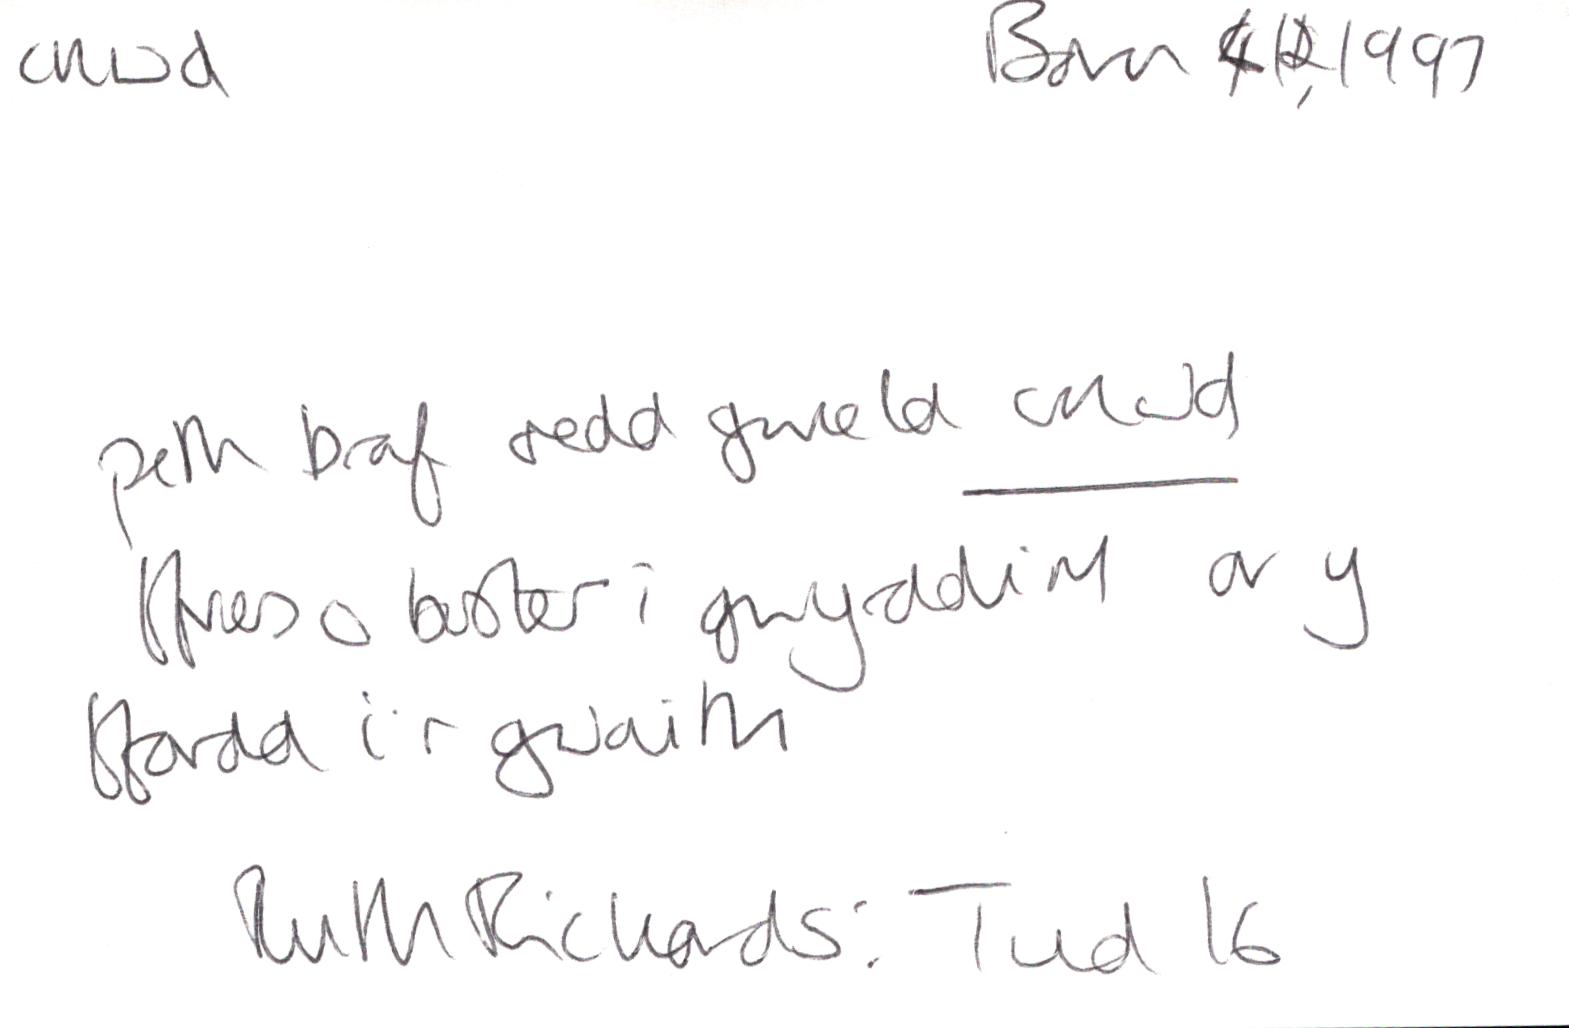 cnwd
Barn 1997
peth braf oedd gweld cnwd
ffres o boster i ar y
ffordd i'r gwaith
Ruth Richards: Tud 16